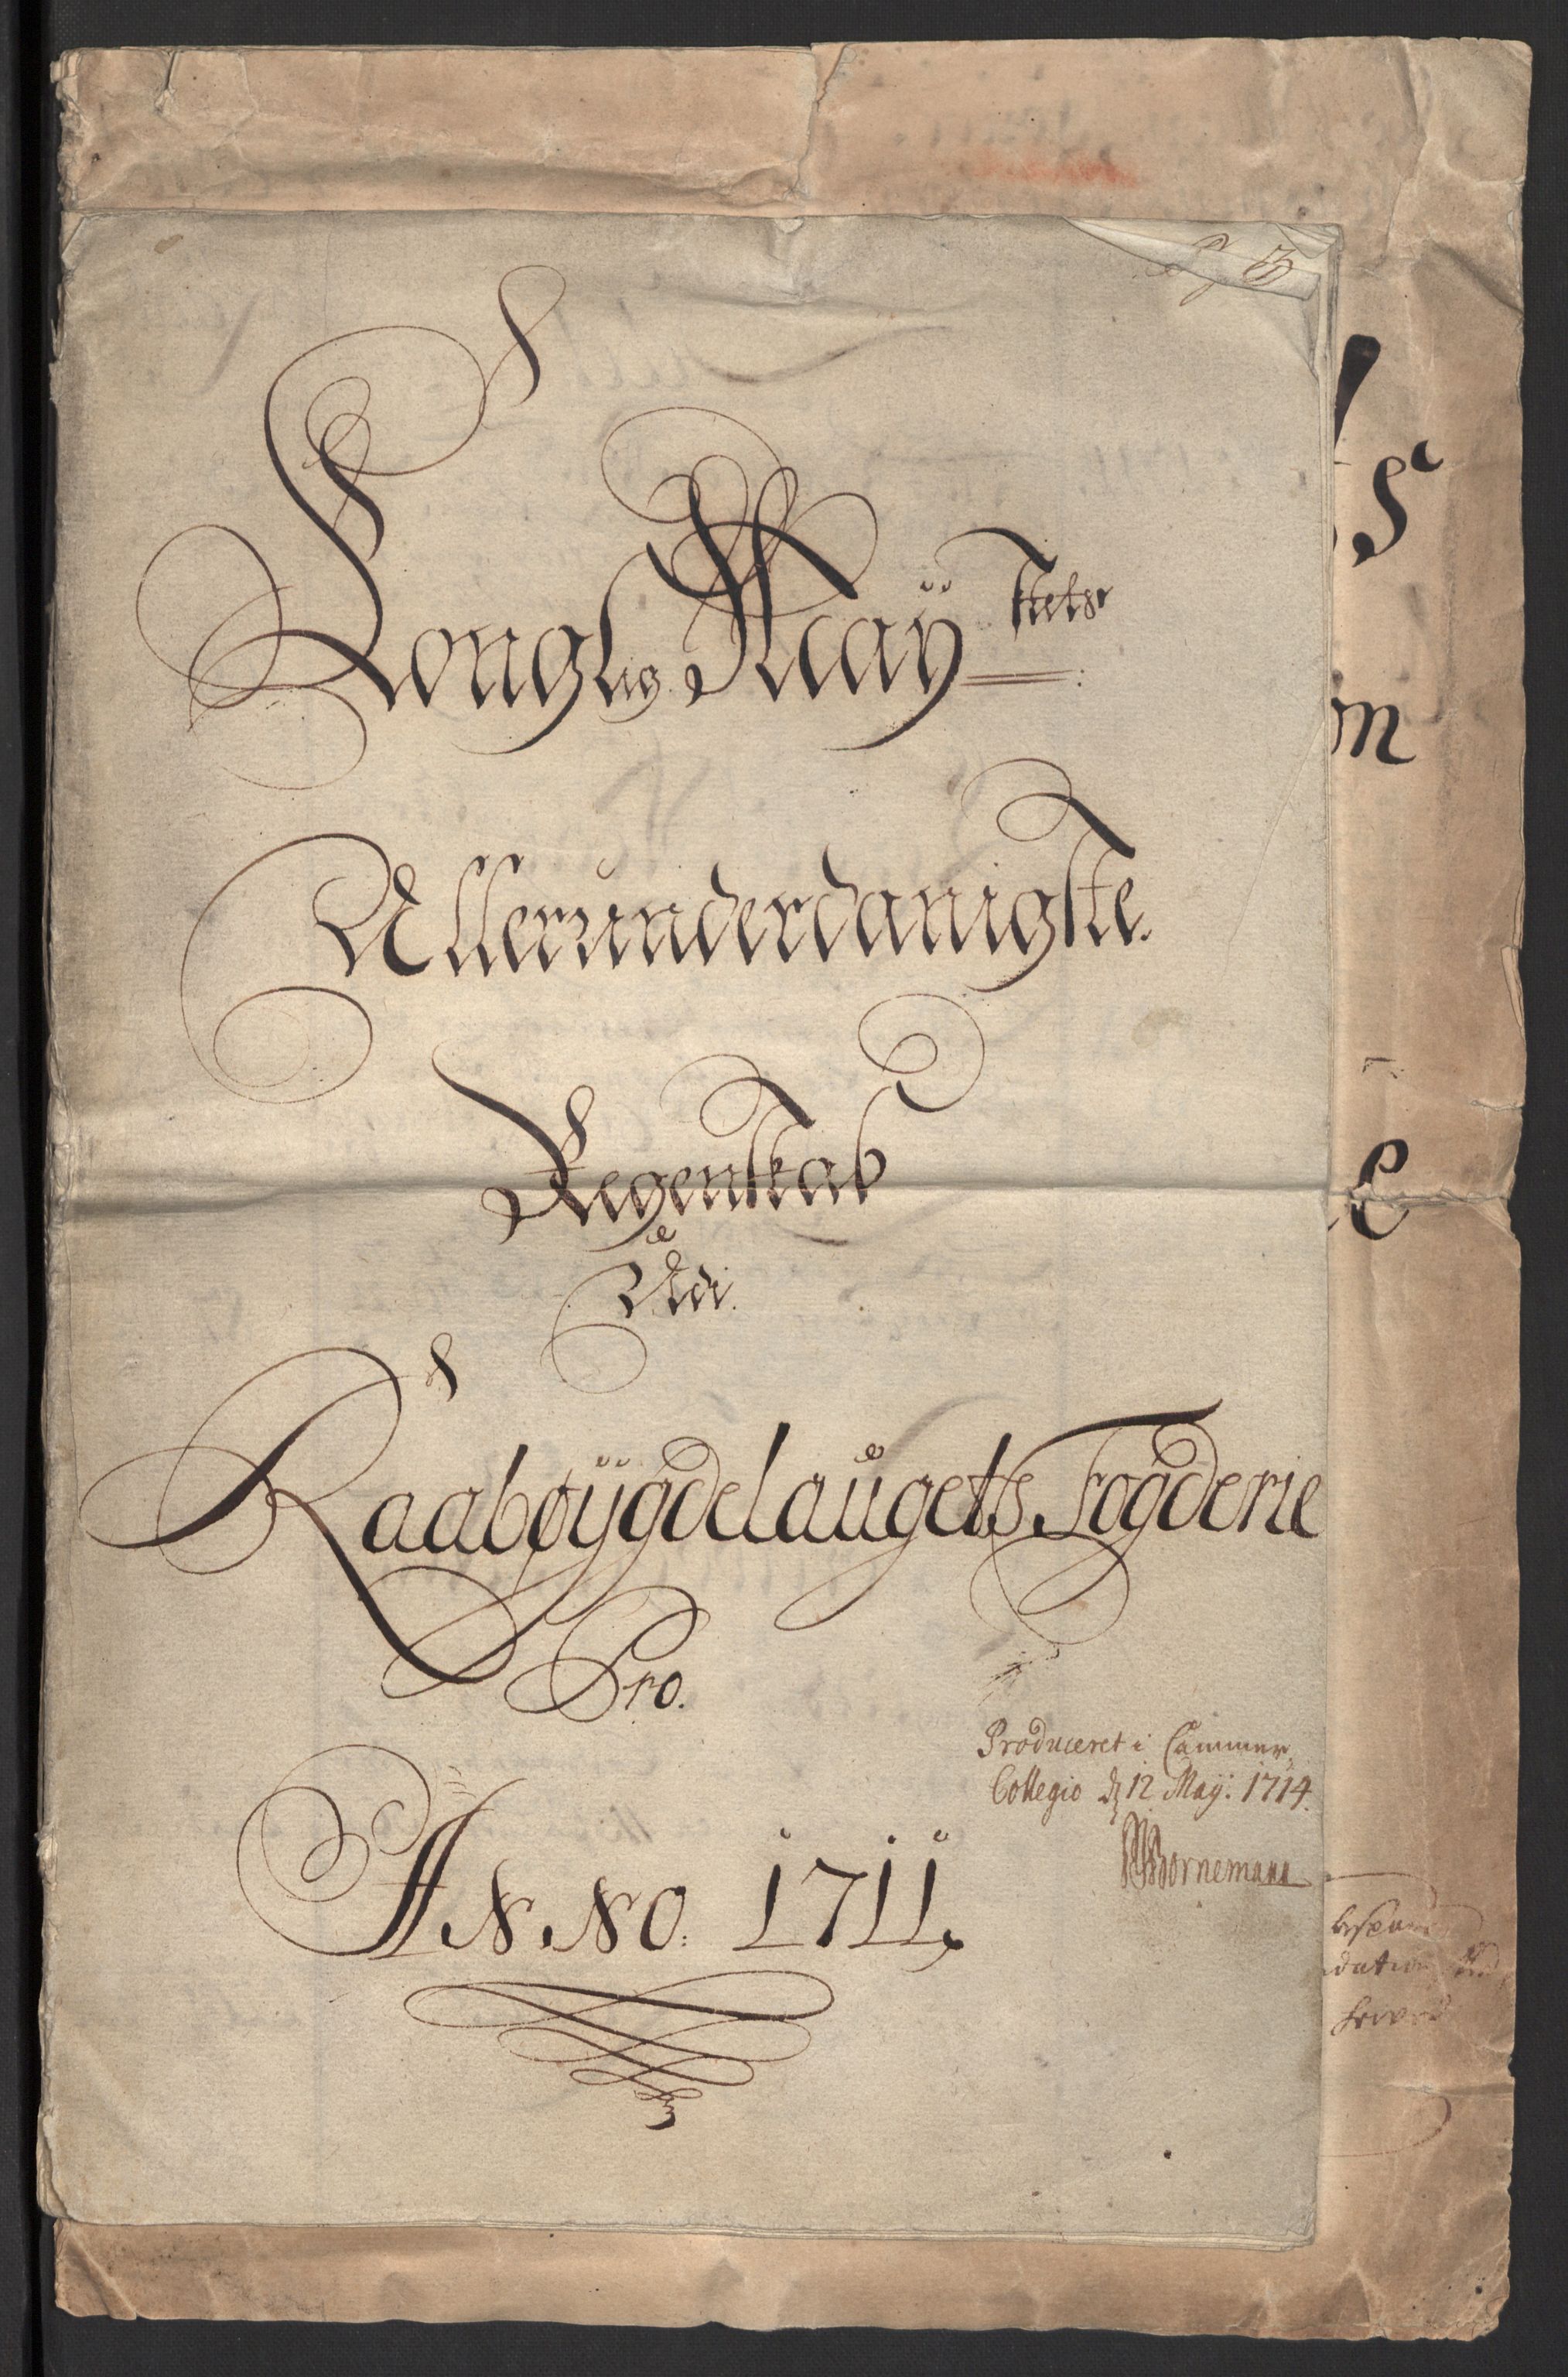 Konglig Maÿ<sup>ttets</sup>
Allerunderdanigste
Regenskab
Udi
Raabøÿgdelaugets Fogderie
Pro.
ANNO. 1711.
Produceret i Cammer
Collegio d 12 Maÿ: 1714.
Bornemann